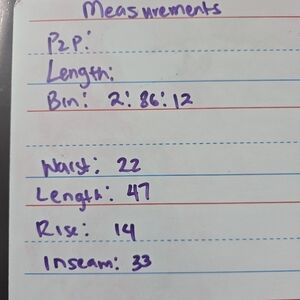 Measurements
P2P:
Length:
Bin: 2:86:12
Waist: 22
Length: 47
Rise: 14
Inseam: 33